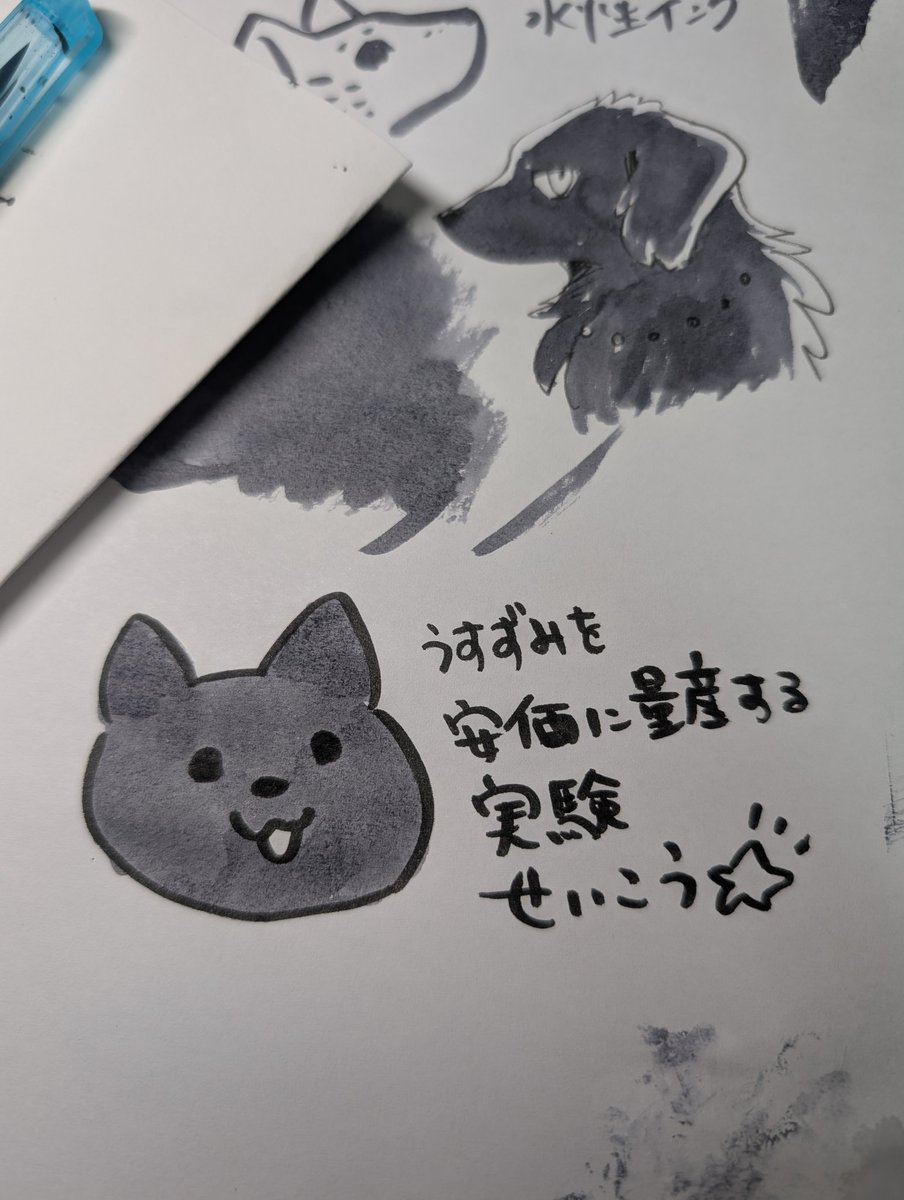 水性インク
うすずみを
安価に量産する
実験
せいこう☆